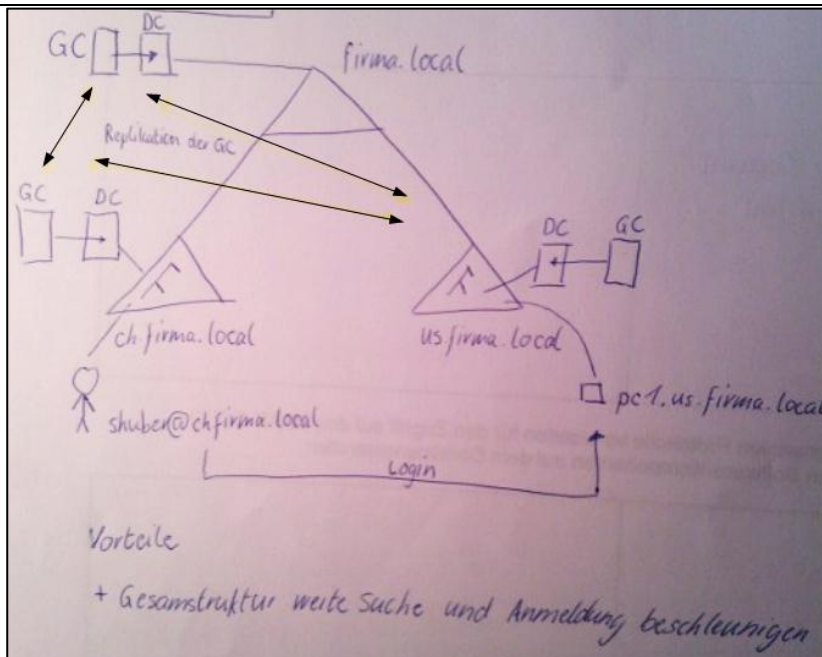 DC
GC
firma.local
Replikation der GC
GC
DC
DC
GC
ch.firma.local
us.firma.local
shuber@chfirma.local
pc1.us.firma.local
Login
Vorteile
+ Gesamstruktur weite Suche und Anmeldung beschleunigen